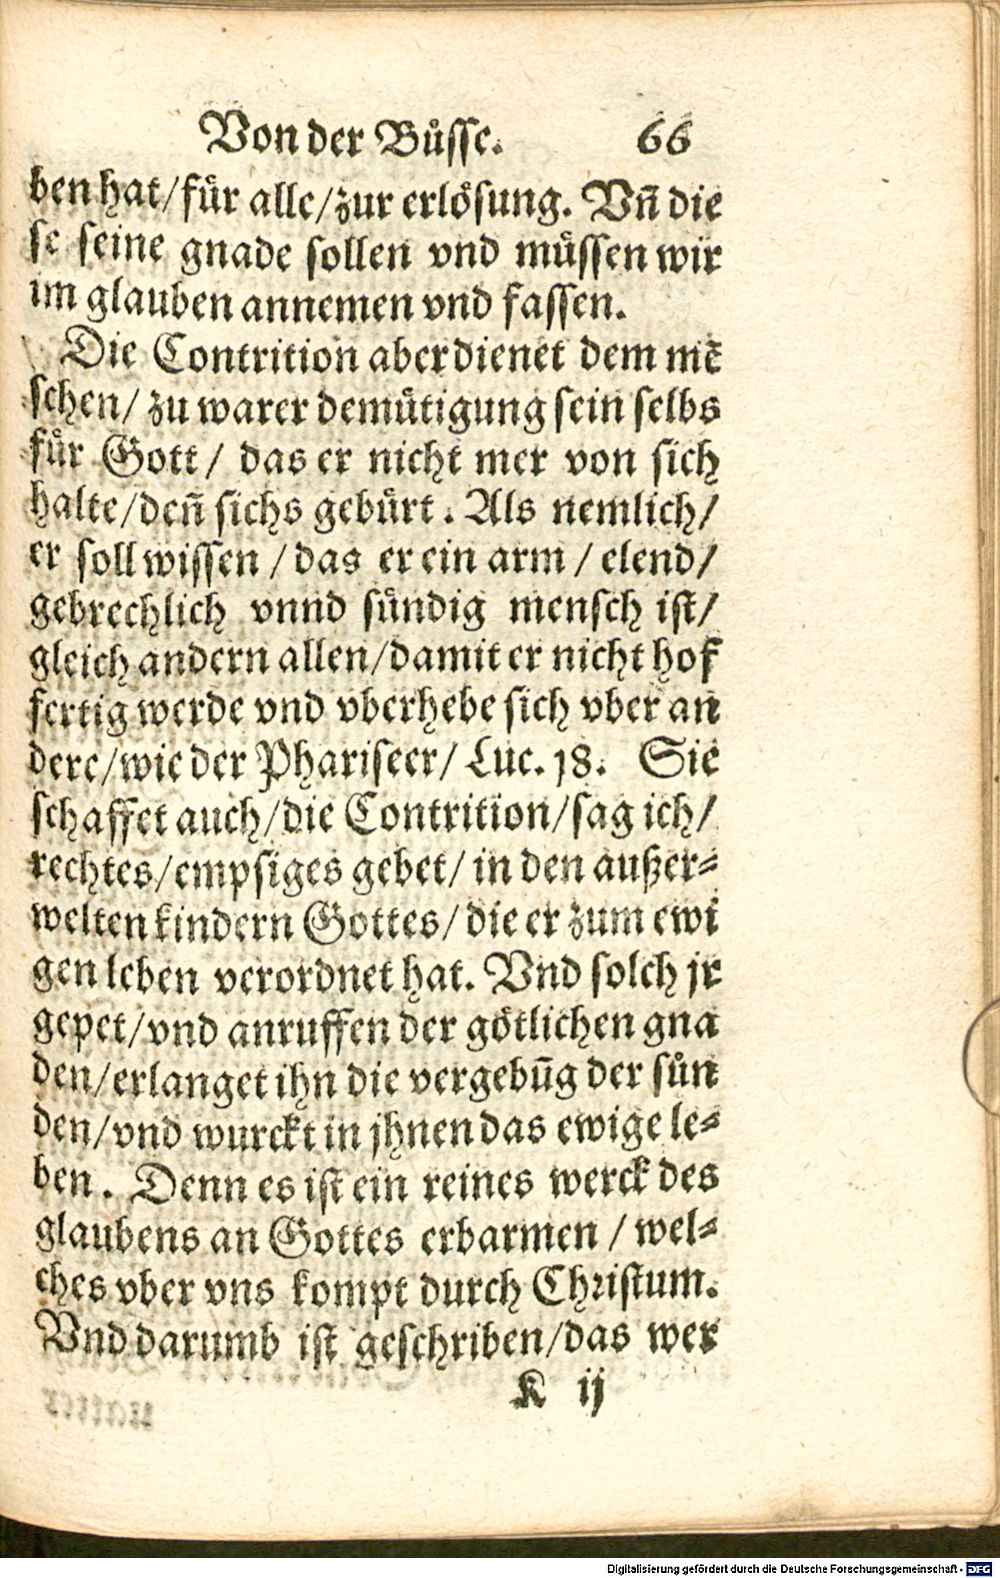 Von der Buͤsse. 66
ben hat/fuͤr alle/zur erloͤsung. Vn̄ die
se seine gnade sollen vnd muͤssen wir
im glauben annemen vnd fassen.
Die Contrition aber dienet dem mē
schen/ zu warer demuͤtigung sein selbs
fuͤr Gott/ das er nicht mer von sich
halte/den̄ sichs gebuͤrt. Als nemlich/
er soll wissen /das er ein arm / elend/
gebrechlich vnnd suͤndig mensch ist/
gleich andern allen/damit er nicht hof
fertig werde vnd vberhebe sich vber an
dere/wie der Phariseer/ Luc. 18. Sie
schaffet auch/die Contrition/sag ich/
rechtes/empsiges gebet/ in den außer⸗
welten kindern Gottes/die er zum ewi
gen leben verordnet hat. Vnd solch jr
gepet/vnd anruffen der goͤtlichen gna
den/erlanget ihn die vergebūg der suͤn
den/vnd wurckt in jhnen das ewige le⸗
ben. Denn es ist ein reines werck des
glaubens an Gottes erbarmen / wel⸗
ches vber vns kompt durch Christum.
Vnd darumb ist geschriben/das wer
K ij
Digitalisierung gefördert durch die Deutsche Forschungsgemeinschaft - DFG